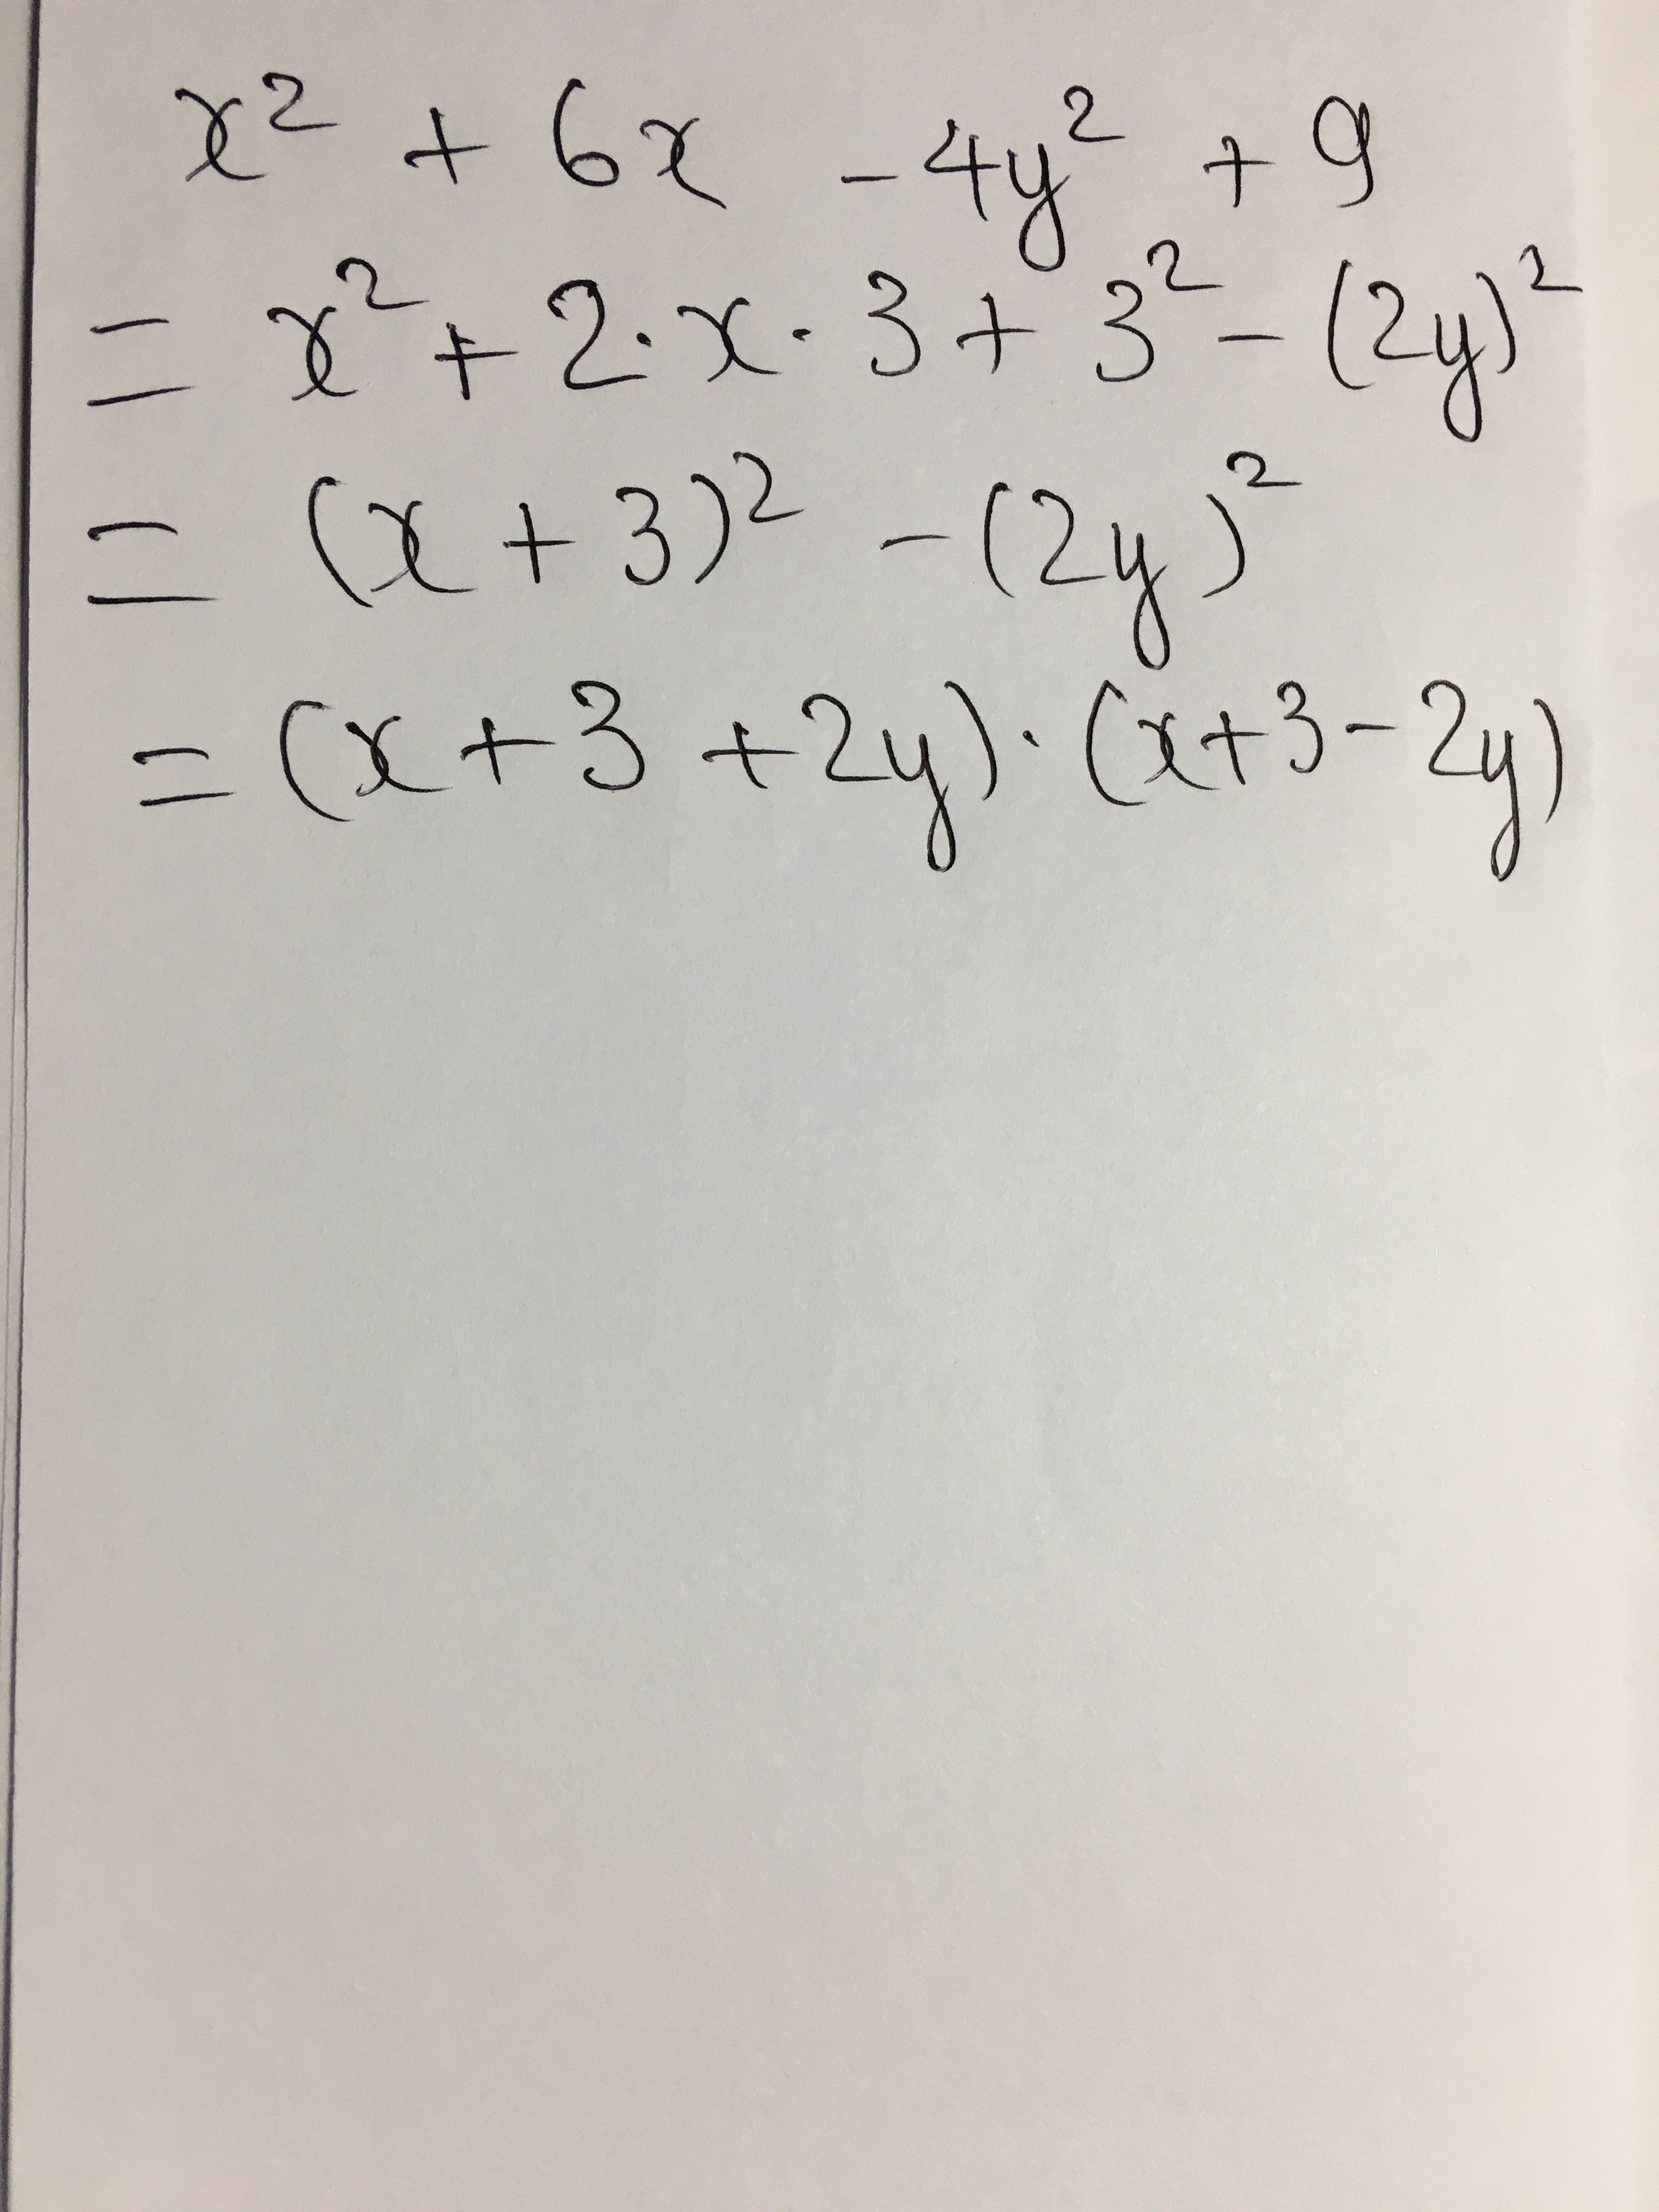 x² + 6x - 4y² + 9
= x² + 2·x·3 + 3² - (2y)²
= (x + 3)² - (2y)²
= (x + 3 + 2y)·(x+3-2y)